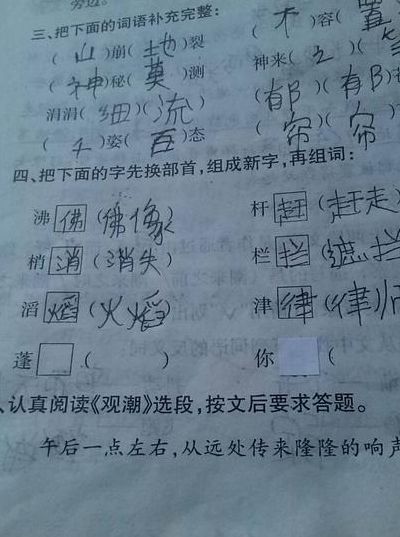 旁边。
三、把下面的词语补充完整：
(山)崩(地)裂 (木)容(置
(神)秘(莫)测 神来(之)(
涓涓(细)(流) (有阝)(有阝)
(千)姿(百)态 (帘)(帘)
四、把下面的字先换部首，组成新字，再组词：
沸 佛 (佛像) 杆 赶 (赶走)
梢 消 (消失) 栏 拦 (遮拦
滔 焰 (火焰) 津 律 (律师
蓬 ( ) 你 (
、认真阅读《观潮》选段，按文后要求答题。
午后一点左右，从远处传来隆隆的响声